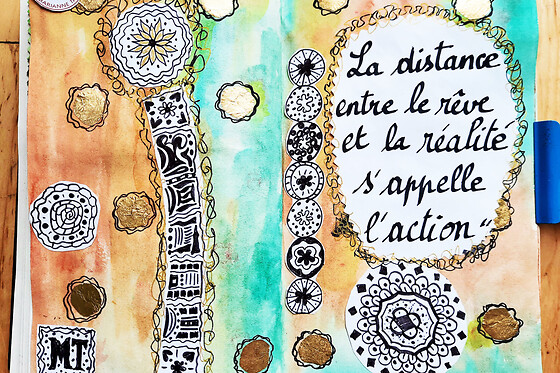 MARIANNE
La distance
entre le rêve
et la réalité
s'appelle
l'action"
MT